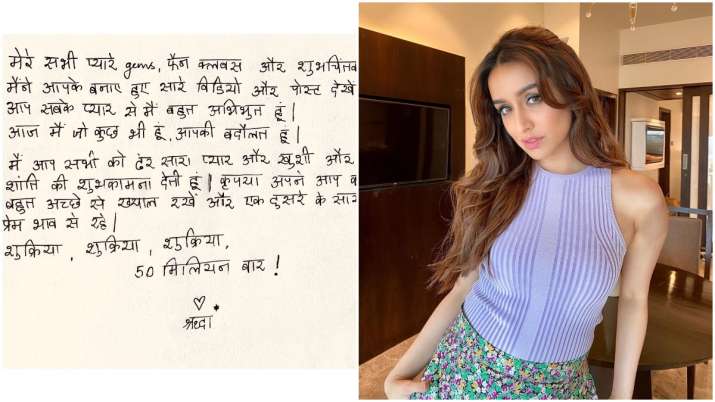 मेरे सभी प्यारे gems, फैन क्लबस और शुभचिंतक
मैंने आपके बनाए हुए सारे विडियो और पोस्ट देखें
आप सबके प्यार से मैं बहुत अभिभुत हूं।
आज मैं जो कुछ भी हूं, आपकी बदौलत हूं।
मैं आप सभी को ढेर सारा प्यार और खुशी और
शांति की शुभकामना देती हूं। कृपया अपने आप
बहुत अच्छे से ख्याल रखें और एक दुसरे के
प्रेम भाव से रहे।
शुक्रिया, शुक्रिया, शुक्रिया,
50 मिलियन बार!
श्रध्दा